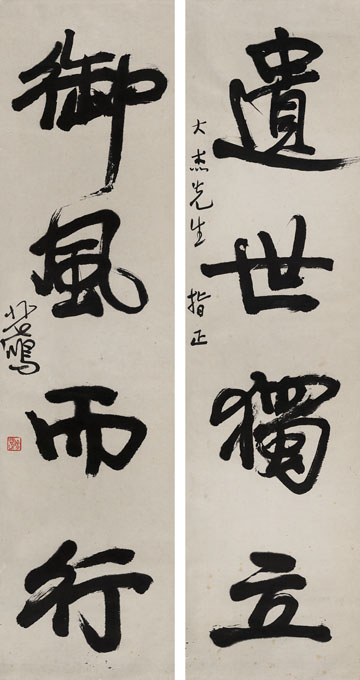 遺世獨立
大杰先生 指正
御風而行